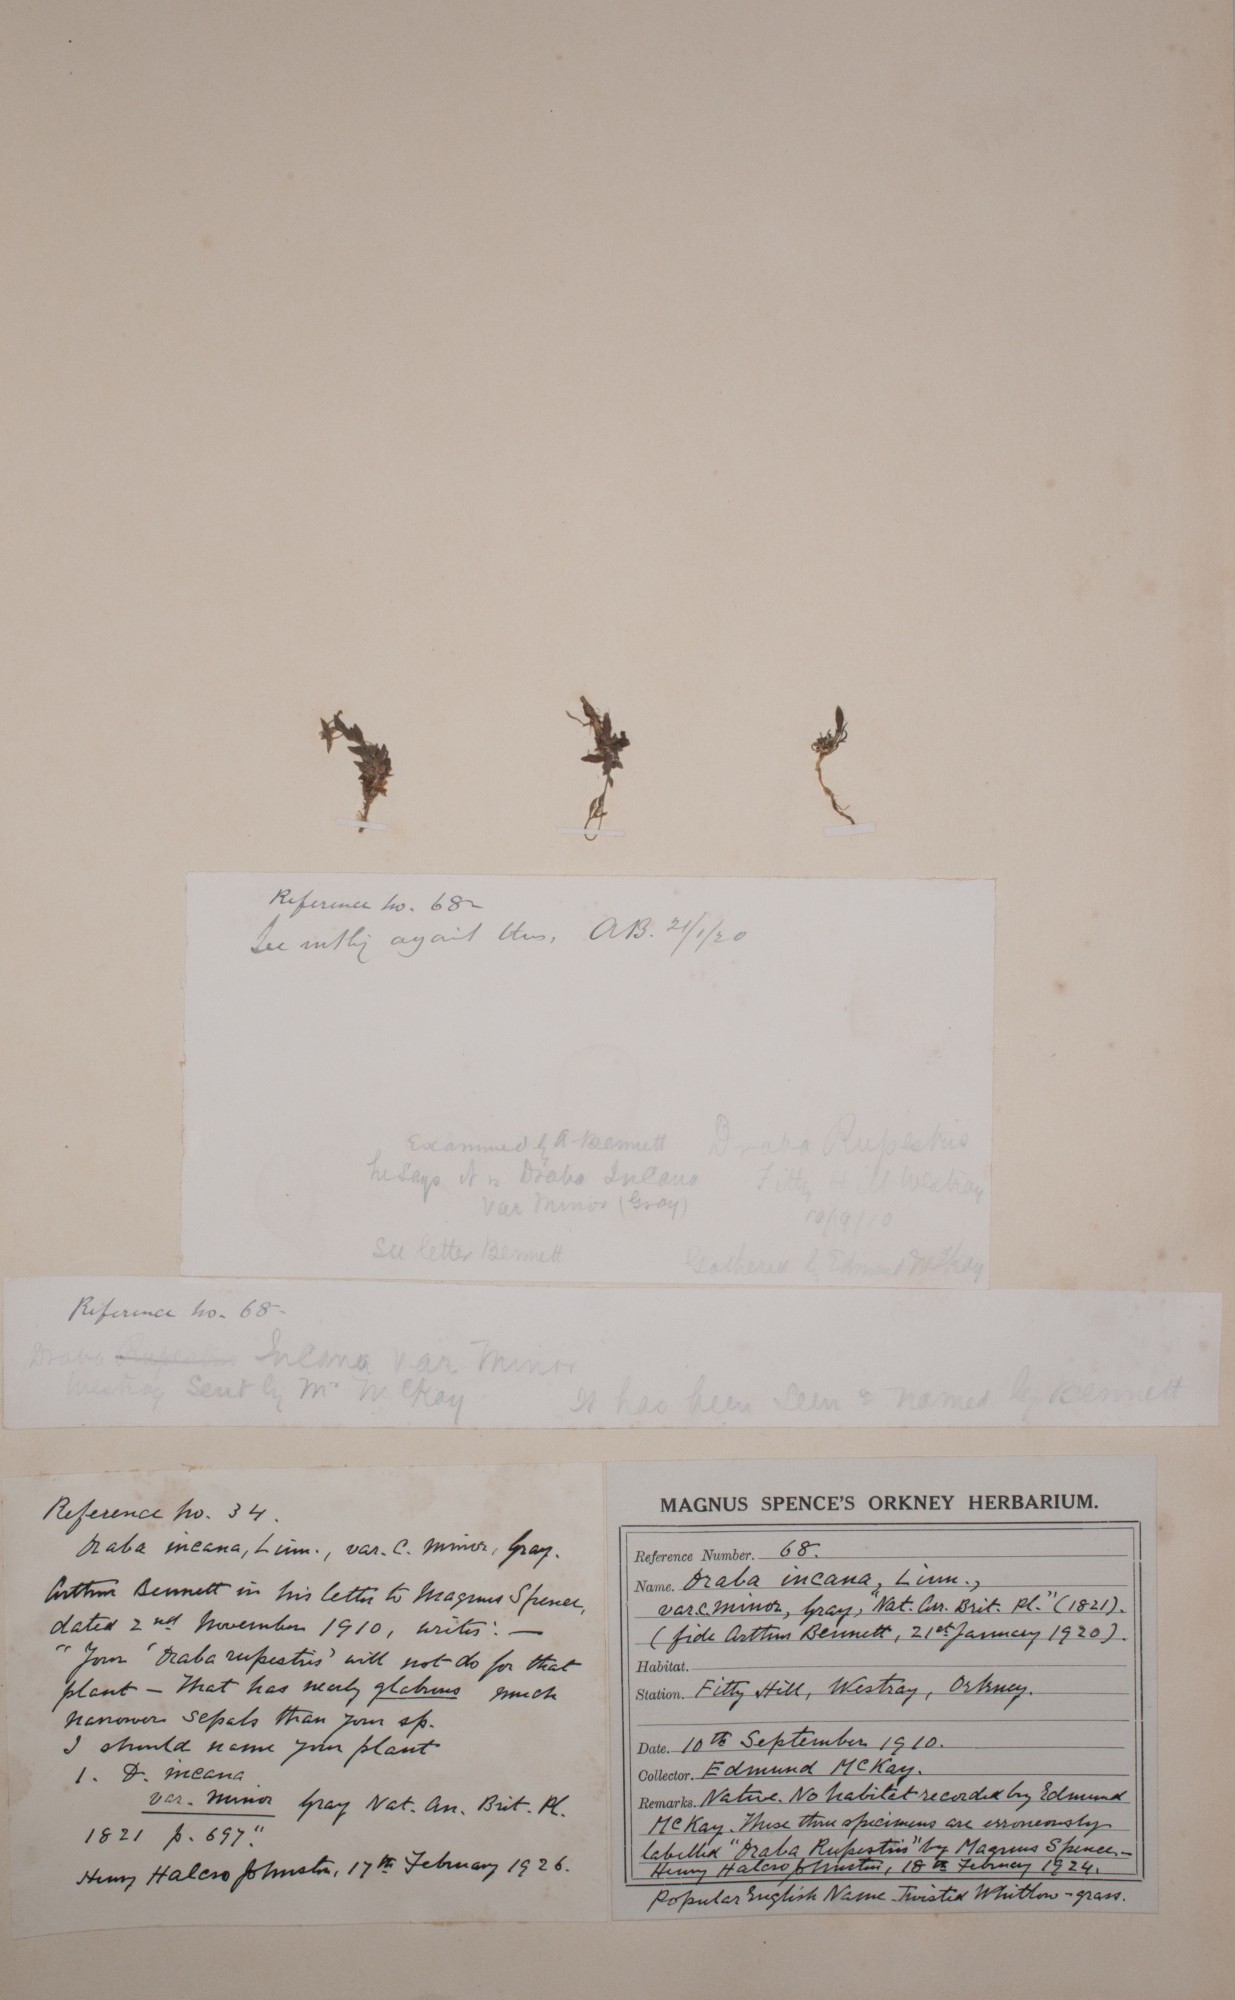 Reference no. 68
See nothing against this. AB. 21/1/20
Examined by A Bennett
he says it is Draba Incana
var minor (Gray)
See letter Bennett
Draba Rupestris
Fitty Hill Westray
10/9/10
Gathered by Edmund McKay
Reference no. 68
Draba Rupestris Incana var Minor
Westray Sent by Mr McKay
It has been seen & named by Bennett
Reference no. 34.
Draba incana, Linn., var. C. minor, Gray.
Arthur Bennett in his letter to Magnus Spence,
dated 2nd November 1910, writes: —
"Your 'Draba rupestris' will not do for that
plant — That has nearly glabrous much
narrower sepals than your sp.
I should name your plant
1. D. incana
var. minor Gray Nat. Arr. Brit. Pl.
1821 p. 697."
Henry Halcro Johnston, 17th February 1926.
MAGNUS SPENCE'S ORKNEY HERBARIUM.
Reference Number. 68.
Name. Draba incana, Linn.,
var. c. minor, Gray, "Nat. Arr. Brit. Pl." (1821).
(fide Arthur Bennett, 21st January 1920).
Habitat.
Station. Fitty Hill, Westray, Orkney.
Date. 10th September 1910.
Collector. Edmund McKay.
Remarks. Native. No habitat recorded by Edmund
McKay. These three specimens are erroneously
labelled "Draba Rupestris" by Magnus Spence.—
Henry Halcro Johnston, 18th February 1924.
Popular English Name Twisted Whitlow-grass.